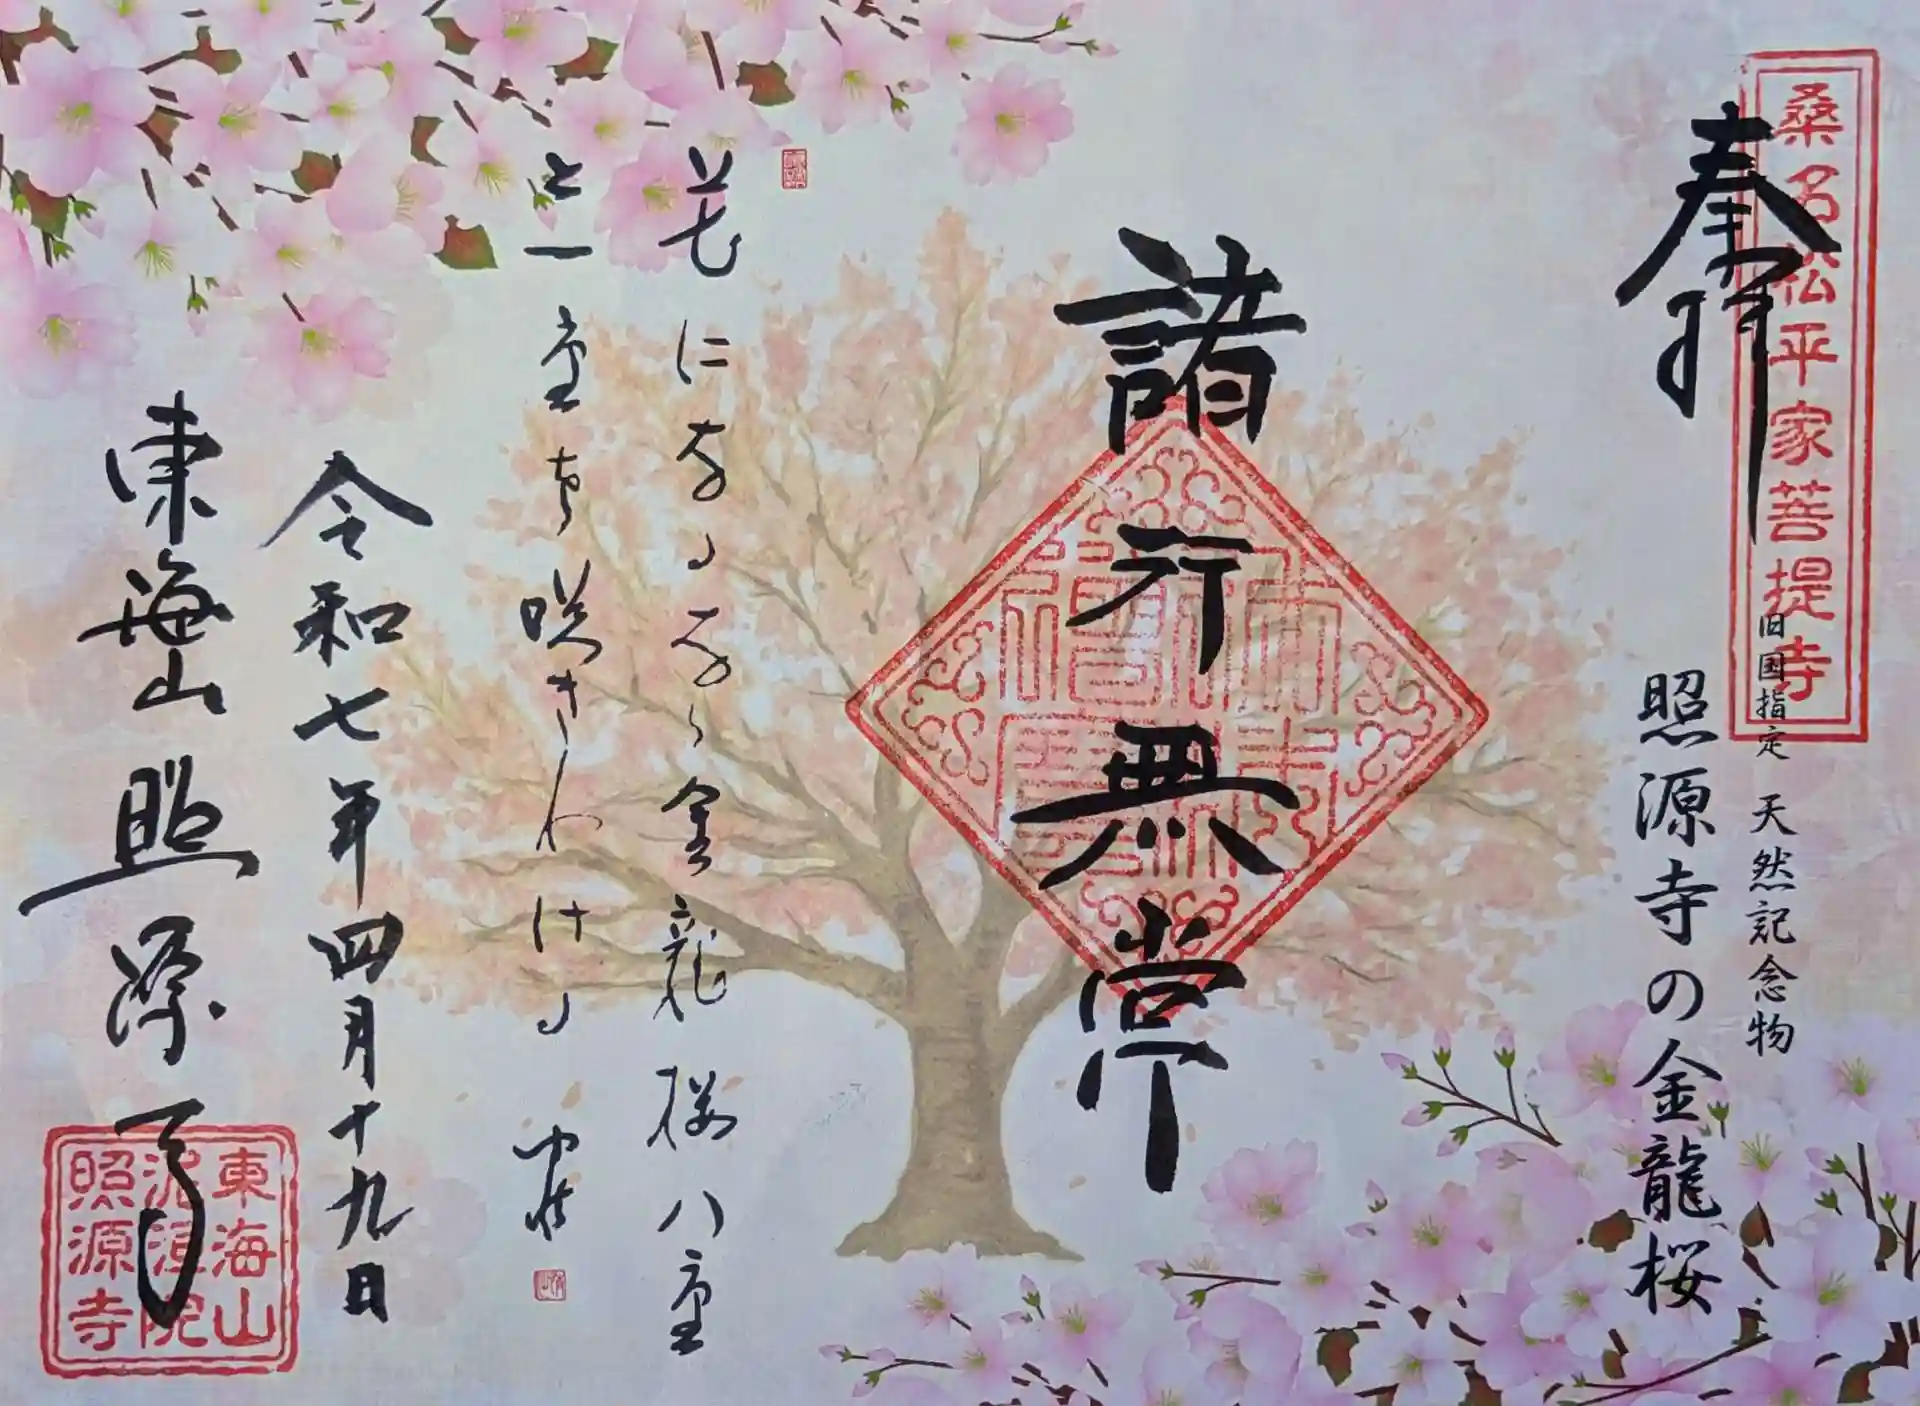 桑名松平家菩提寺
奉拝
旧国指定 天然記念物
照源寺の金龍桜
諸行無常
花になるなら金龍桜八重
と一重 咲きわける
令和七年四月十九日
東海山照源寺
東海山
泥洹院
照源寺